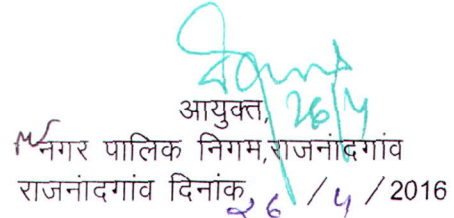 आयुक्त, 26/4
नगर पालिक निगम,राजनांदगांव
राजनांदगांव दिनांक 26 / 4 / 2016